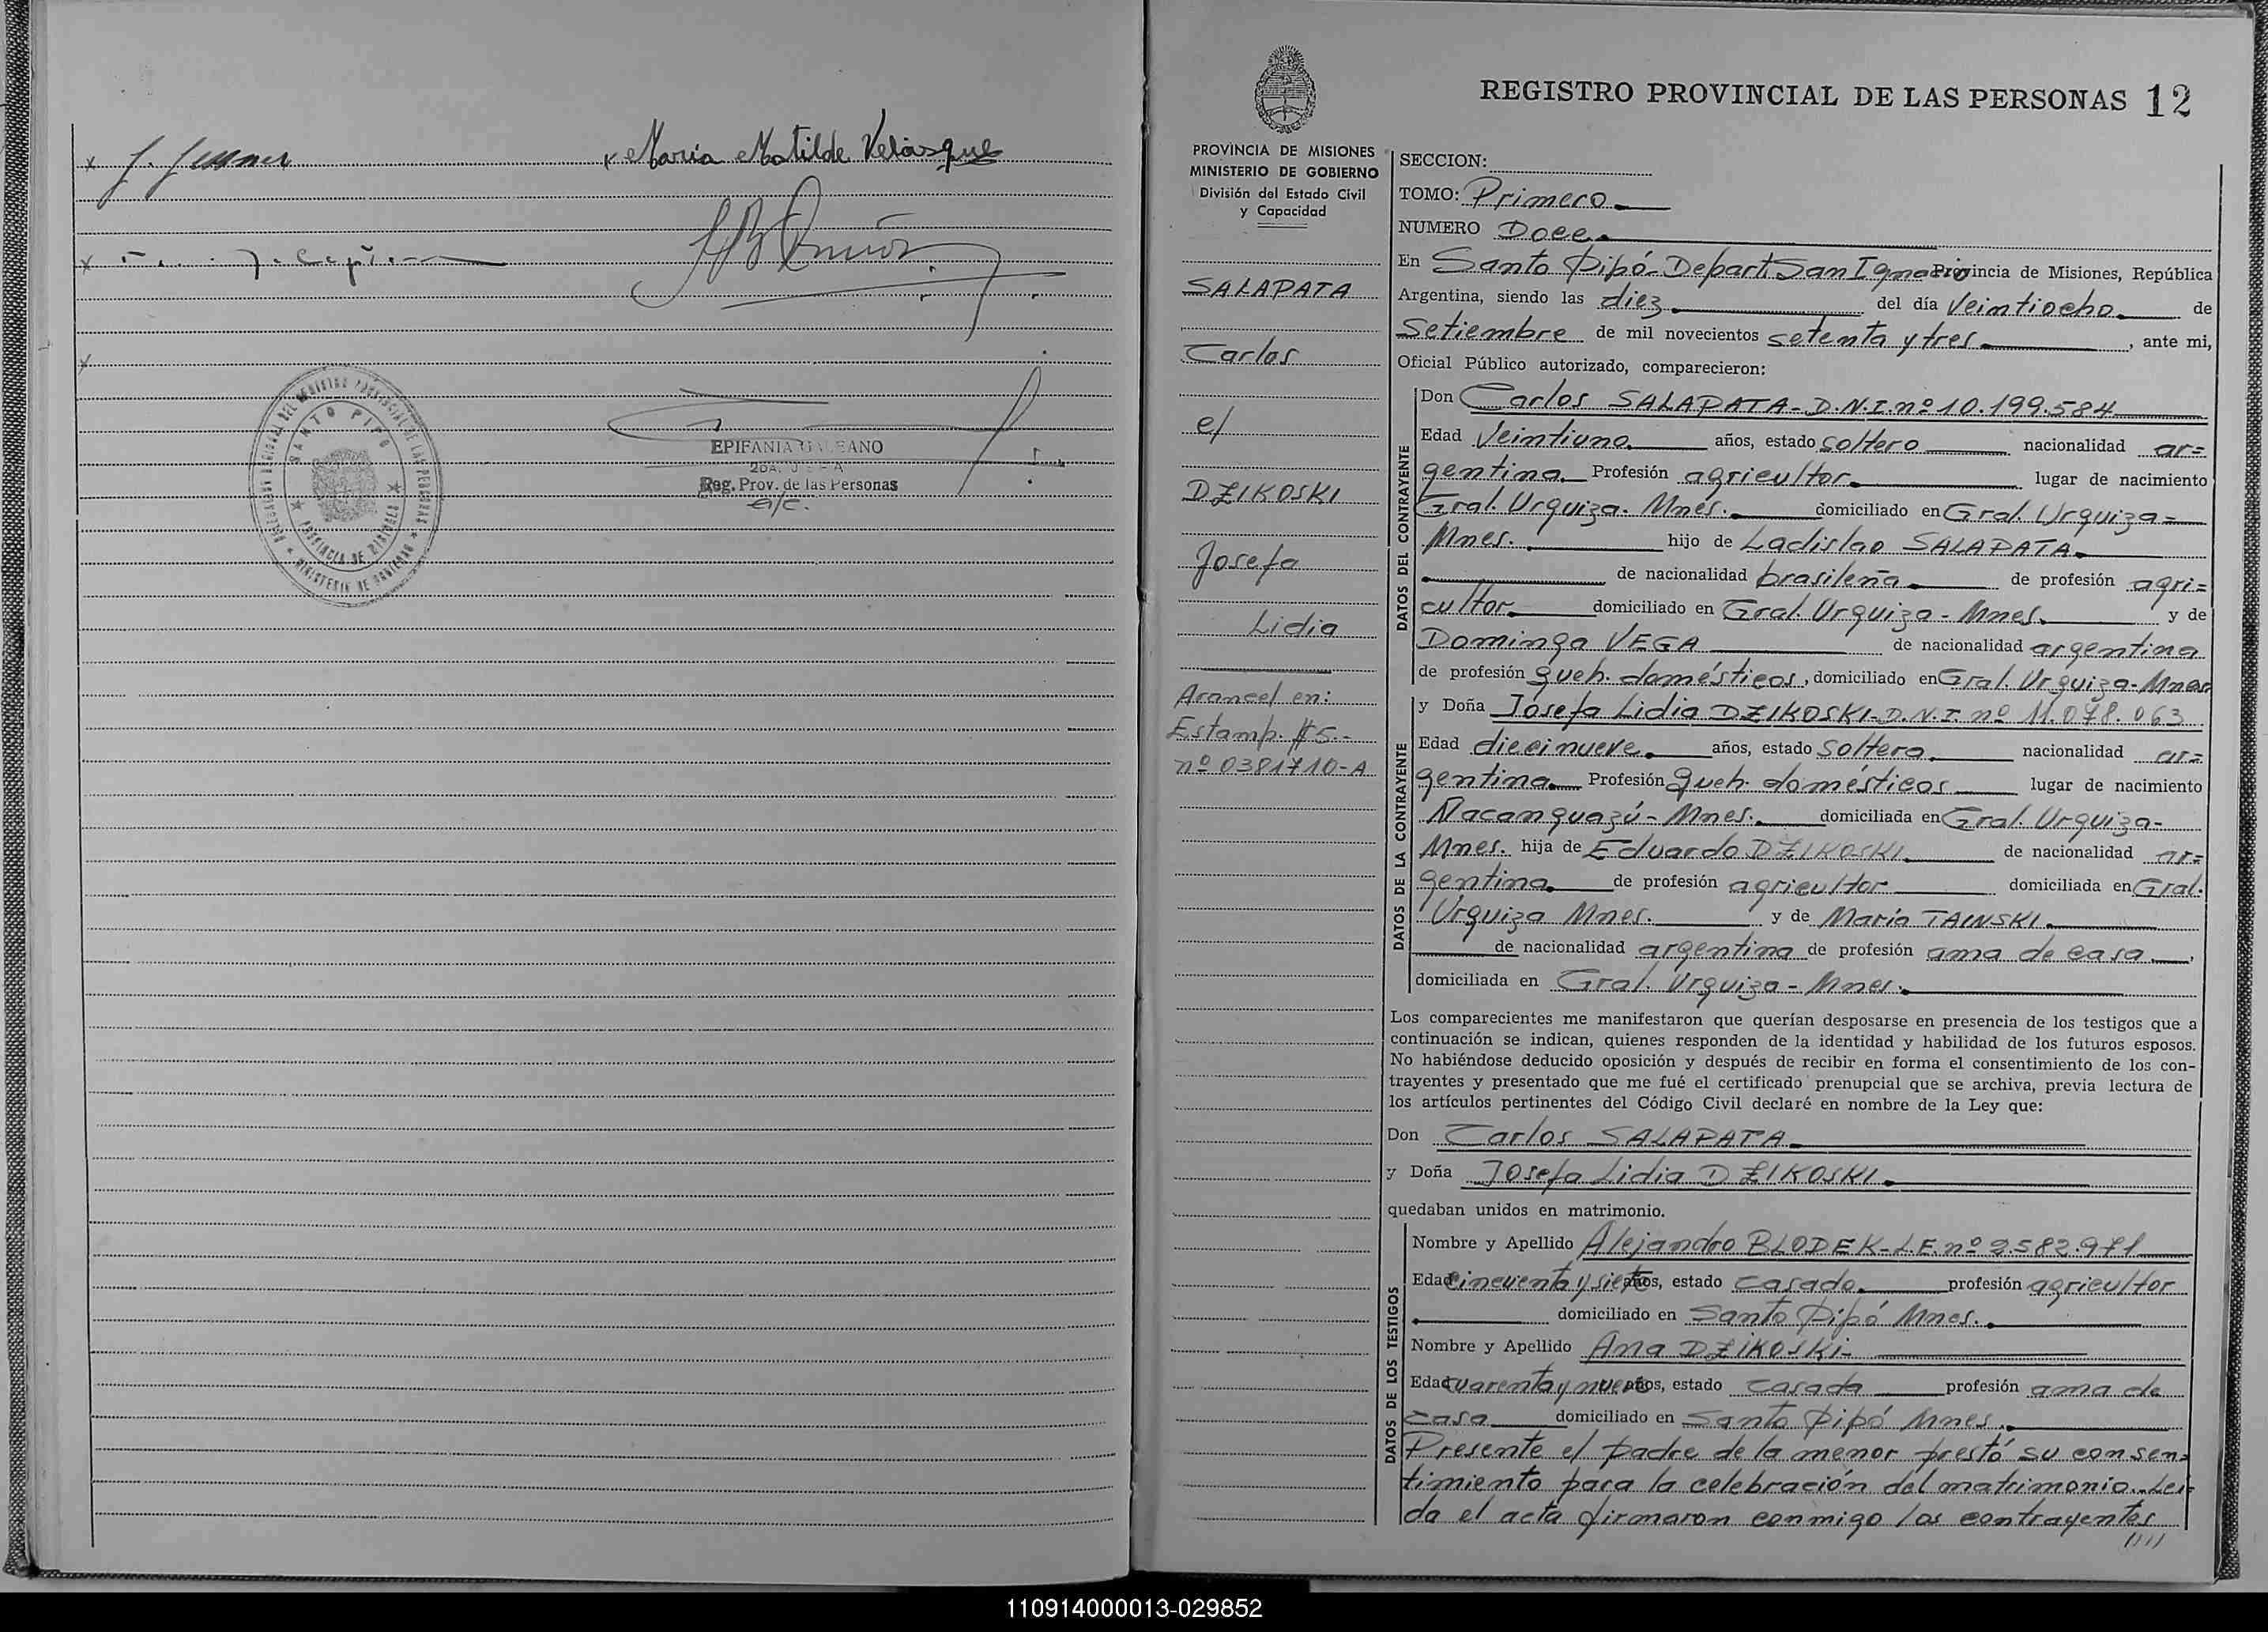 María Matilde Velasque
SANTO PIPO
PROVINCIA DE MISIONES
MINISTERIO DE GOBIERNO
EPIFANIA GALEANO
Reg. Prov. de las Personas
a/c.
REGISTRO PROVINCIAL DE LAS PERSONAS 12
PROVINCIA DE MISIONES
MINISTERIO DE GOBIERNO
División del Estado Civil
y Capacidad
SALAPATA
Carlos
c/
DZIKOSKI
Josefa
Lidia
Arancel en:
Estamp. $5.-
nº 0381710-A
SECCION:
TOMO: Primero
NUMERO Doce
En Santo Pipó-Depart. San Ignacio Provincia de Misiones, República
Argentina, siendo las diez del día Veintiocho de
Setiembre de mil novecientos setenta y tres, ante mi,
Oficial Público autorizado, comparecieron:
DATOS DEL CONTRAYENTE
Don Carlos SALAPATA-D.N.I.nº10.199.584
Edad Veintiuno años, estado soltero nacionalidad ar=
gentina Profesión agricultor lugar de nacimiento
Gral. Urquiza. Mnes. domiciliado en Gral. Urquiza-
Mnes. hijo de Ladislao SALAPATA
de nacionalidad brasileña de profesión agri=
cultor domiciliado en Gral. Urquiza - Mnes. y de
Dominga VEGA de nacionalidad argentina
de profesión queh. domésticos, domiciliado en Gral. Urquiza-Mnes.
DATOS DE LA CONTRAYENTE
y Doña Josefa Lidia DZIKOSKI-D.N.I. nº 11.078.063
Edad diecinueve años, estado soltera nacionalidad ar=
gentina Profesión queh. domésticos lugar de nacimiento
Ñacanguazú- Mnes. domiciliada en Gral. Urquiza-
Mnes. hija de Eduardo DZIKOSKI de nacionalidad ar=
gentina de profesión agricultor domiciliada en Gral.
Urquiza Mnes. y de María TAINSKI
de nacionalidad argentina de profesión ama de casa,
domiciliada en Gral. Urquiza - Mnes.
Los comparecientes me manifestaron que querían desposarse en presencia de los testigos que a
continuación se indican, quienes responden de la identidad y habilidad de los futuros esposos.
No habiéndose deducido oposición y después de recibir en forma el consentimiento de los con-
trayentes y presentado que me fué el certificado prenupcial que se archiva, previa lectura de
los artículos pertinentes del Código Civil declaré en nombre de la Ley que:
Don Carlos SALAPATA
y Doña Josefa Lidia DZIKOSKI
quedaban unidos en matrimonio.
DATOS DE LOS TESTIGOS
Nombre y Apellido Alejandro BLODEK-L.E. nº 2.582.971
Edad cincuenta y siete años, estado casado profesión agricultor
domiciliado en Santo Pipó Mnes.
Nombre y Apellido Ana DZIKOSKI-
Edad cuarenta y nueve años, estado casada profesión ama de
casa domiciliado en Santo Pipó Mnes.
Presente el padre de la menor prestó su consen=
timiento para la celebración del matrimonio. Leí=
da el acta firmaron conmigo los contrayentes
/////
110914000013-029852